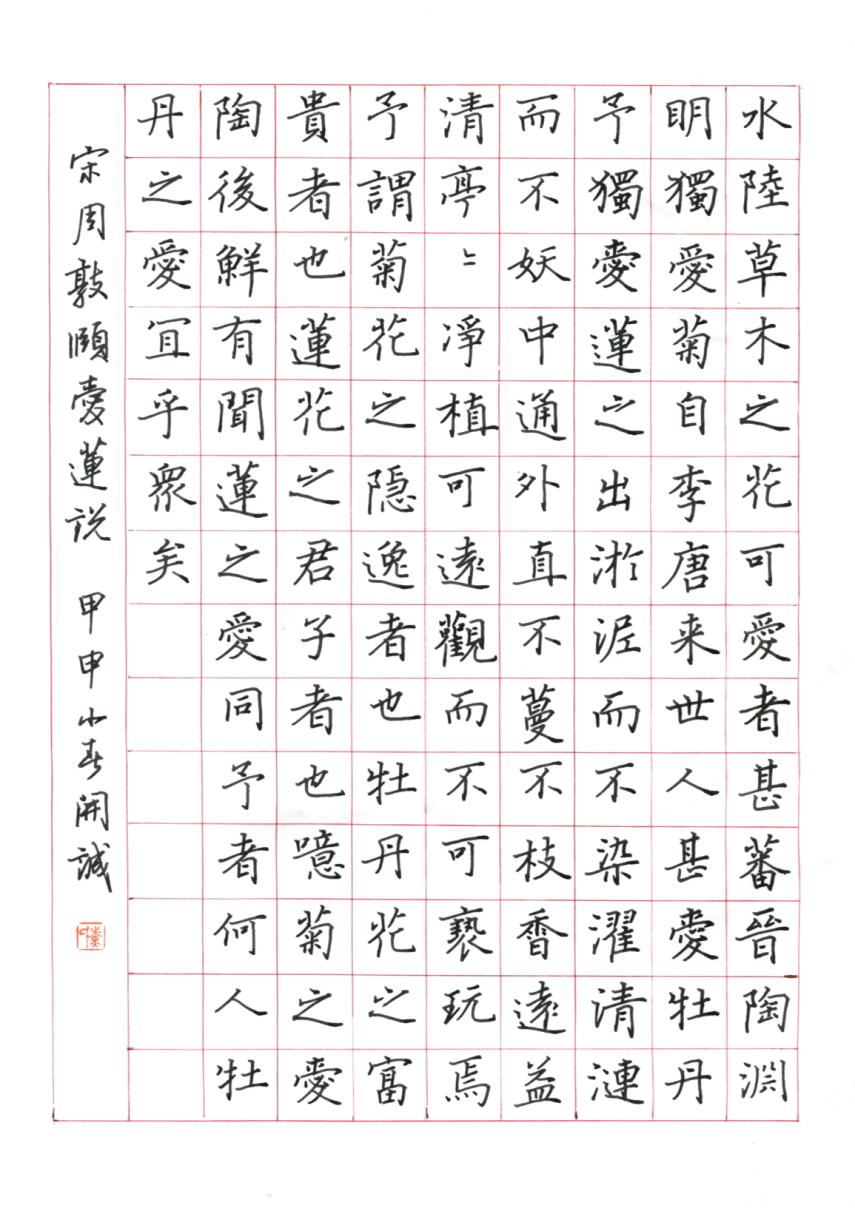 水陸草木之花可愛者甚蕃晉陶淵
明獨愛菊自李唐来世人甚愛牡丹
予獨愛蓮之出淤泥而不染濯清漣
而不妖中通外直不蔓不枝香遠益
清亭〻淨植可遠觀而不可褻玩焉
予謂菊花之隐逸者也牡丹花之富
貴者也蓮花之君子者也噫菊之愛
陶後鮮有聞蓮之愛同予者何人牡
丹之愛宜乎衆矣
宋周敦頤愛蓮说 甲申小春開誠